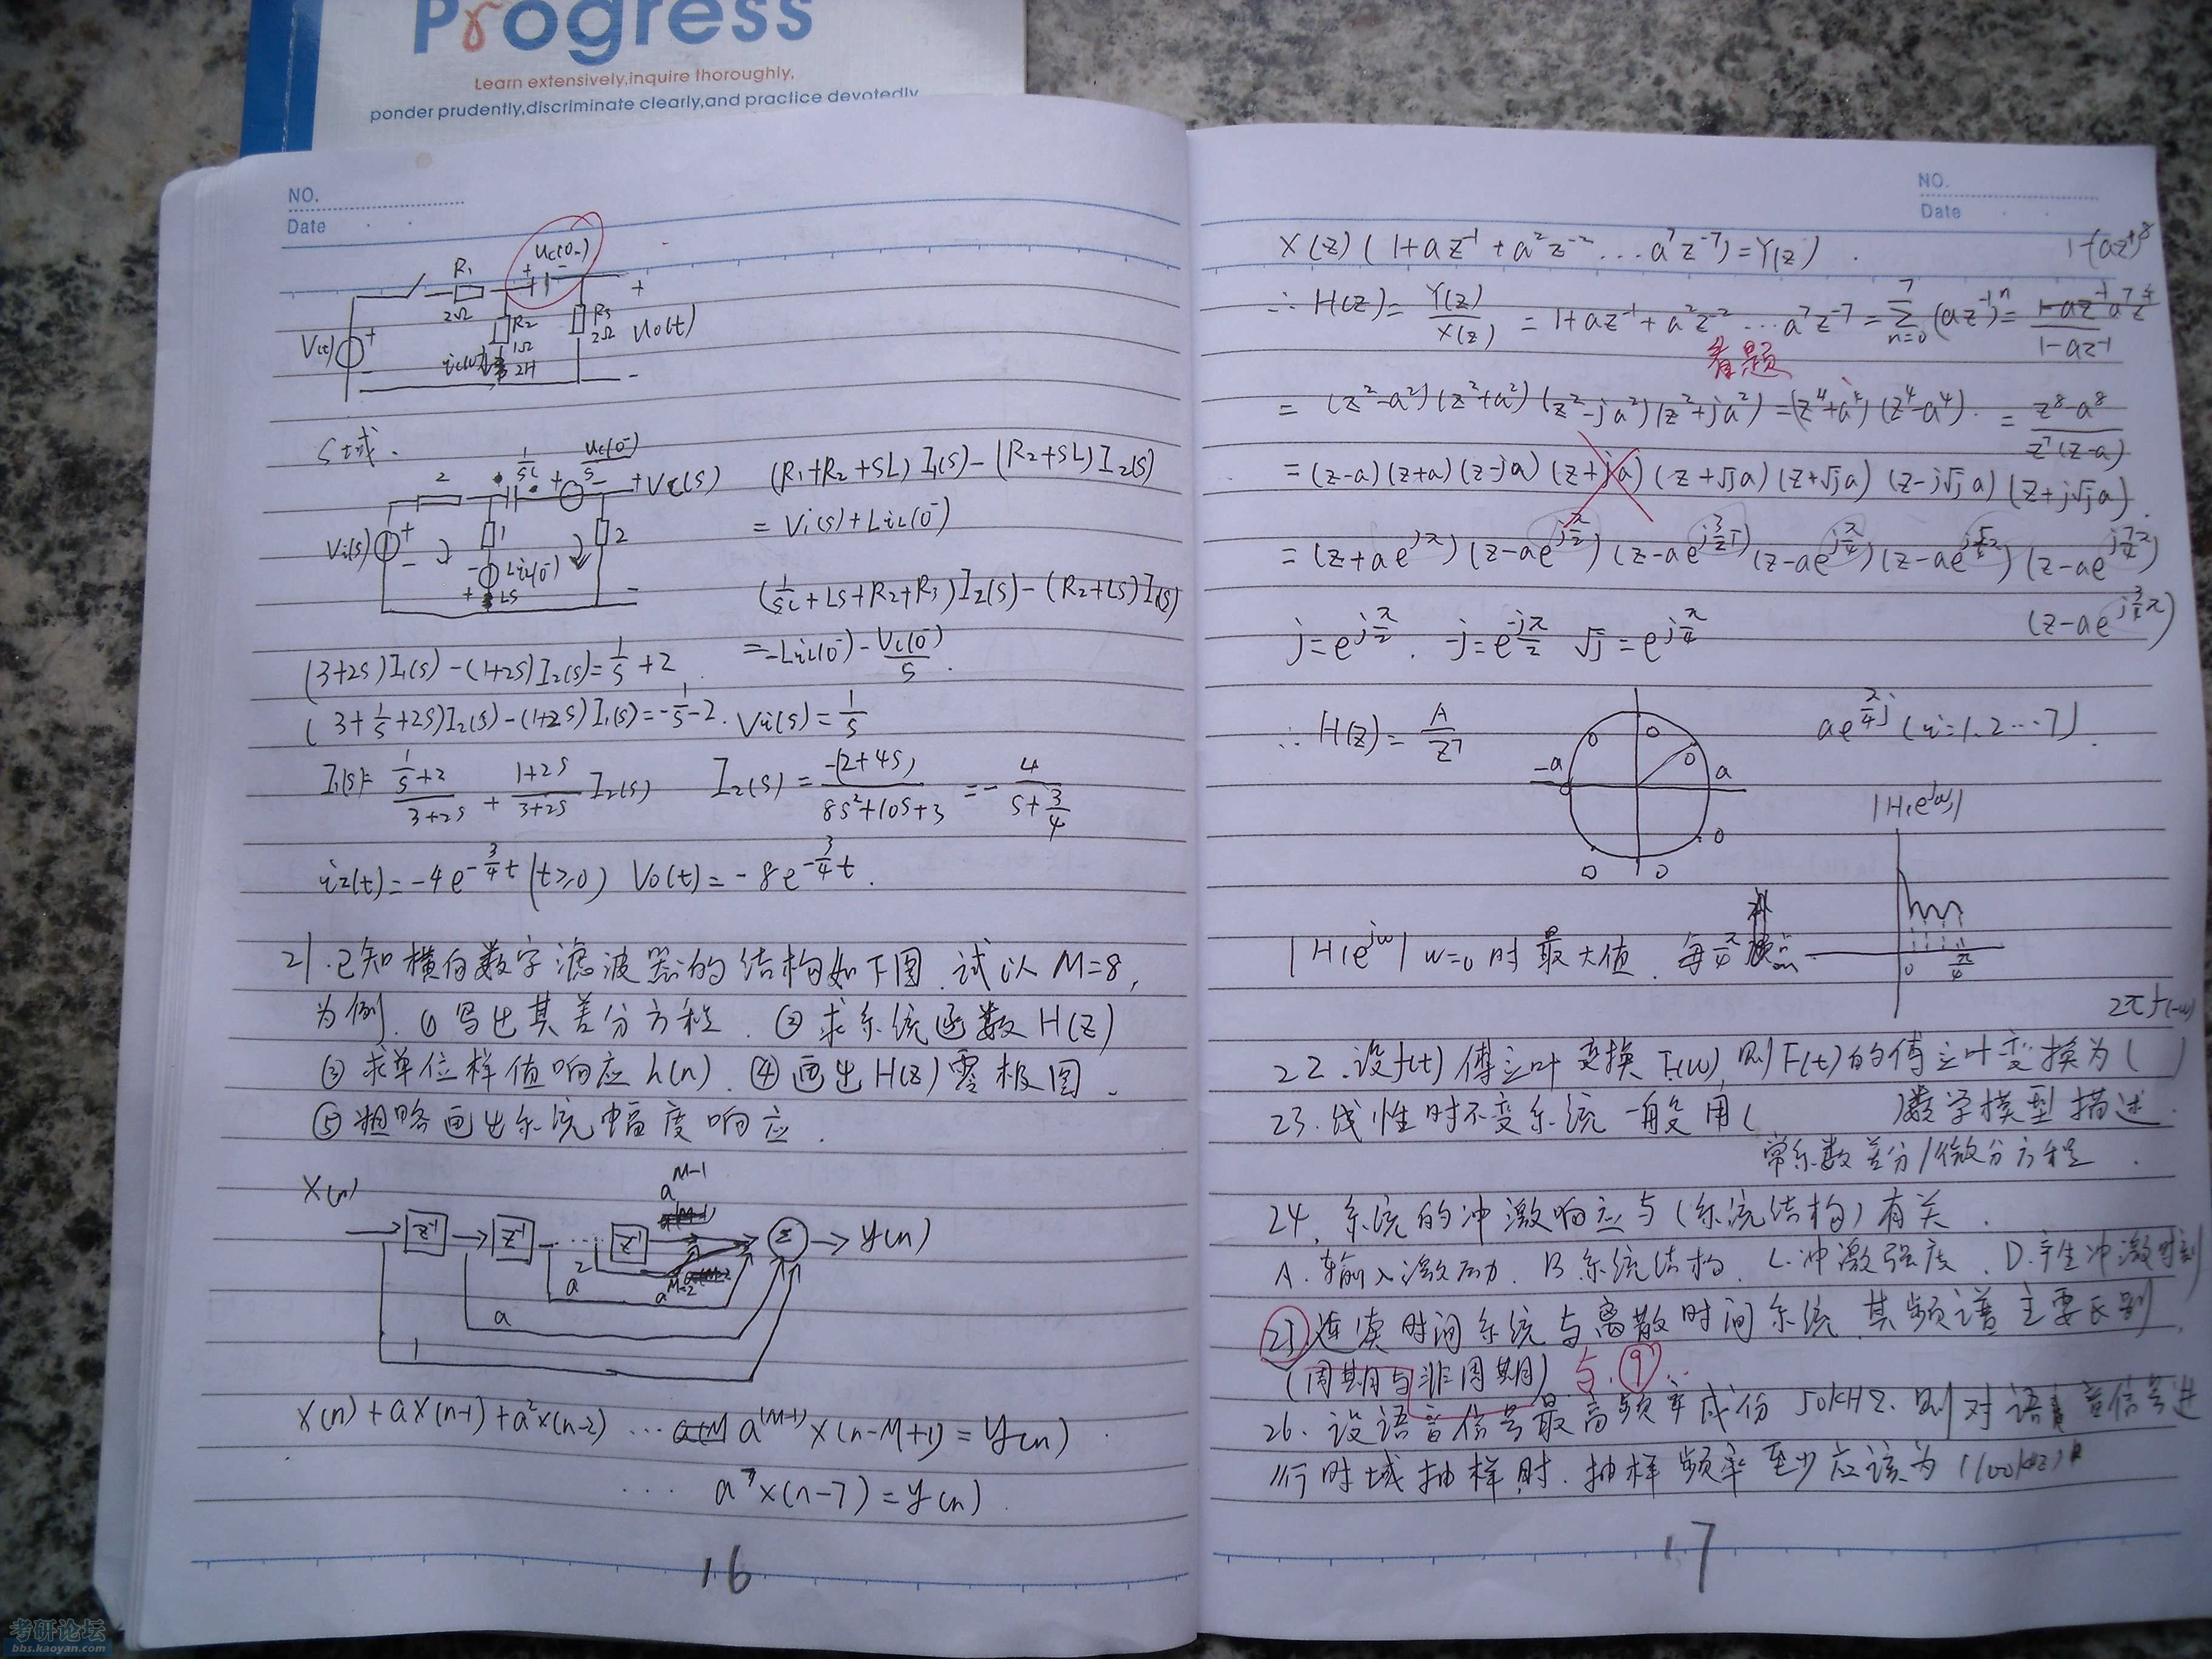 Progress
Learn extensively,inquire thoroughly,
ponder prudently,discriminate clearly,and practice devotedly
NO.
Date
R₁
2Ω
+ uc(0₋) -
R₂
1Ω
2H
R₃
2Ω
+
u₀(t)
-
V(t)
+
-
S域.
2
1/sC
uc(0⁻)/s
+
Vi(s)
1
LiL(0⁻)
LS
2
(R₁+R₂+SL)I₁(s)-(R₂+SL)I₂(s)
=Vi(s)+LiL(0⁻)
(1/sC+LS+R₂+R₃)I₂(s)-(R₂+LS)I₁(s)
=-LiL(0⁻)-Vc(0⁻)/s.
(3+2s)I₁(s)-(1+2s)I₂(s)=1/s+2
(3+1/s+2s)I₂(s)-(1+2s)I₁(s)=-1/s-2. Vi(s)=1/s
I₁(s)=(1/s+2)/(3+2s)+(1+2s)/(3+2s) I₂(s) I₂(s)=-(2+4s)/(8s²+10s+3)=-4/(s+3/4)
i₂(t)=-4e^(-3/4 t)(t≥0) V₀(t)=-8e^(-3/4 t).
21.已知横向数字滤波器的结构如下图.试以M=8,
为例.①写出其差分方程.②求系统函数H(z)
③求单位样值响应h(n).④画出H(z)零极图.
⑤粗略画出系统幅度响应.
X(n)
z⁻¹
z⁻¹
...
z⁻¹
a^(M-1)
Σ
y(n)
a^(M-2)
a²
a
1
x(n)+ax(n-1)+a²x(n-2) ... a^(M-1)x(n-M+1)=y(n)
... a⁷x(n-7)=y(n).
16
NO.
Date
X(z)(1+az⁻¹+a²z⁻²...a⁷z⁻⁷)=Y(z).
1-(az⁻¹)⁸
∴H(z)=Y(z)/X(z)=1+az⁻¹+a²z⁻²...a⁷z⁻⁷=Σ(n=0→7)(az⁻¹)ⁿ=
1-az⁻¹
看题
=(z²-a²)(z²+a²)(z²-ja²)(z²+ja²)=(z⁴+a⁴)(z⁴-a⁴).=(z⁸-a⁸)/(z⁷(z-a))
=(z-a)(z+a)(z-ja)(z+ja)(z+√j a)(z+√j a)(z-j√j a)(z+j√j a).
=(z+ae^(jπ))(z-ae^(jπ/2))(z-ae^(j3/2π))(z-ae^(jπ/4))(z-ae^(j5/4π))(z-ae^(j7/4π))
(z-ae^(j3/4π))
j=e^(jπ/2). -j=e^(-jπ/2) √j=e^(jπ/4)
∴H(z)=A/z⁷
-a
a
ae^(π/4 j)(i=1.2...7).
|H(e^jω)|
0
π/4
|H(e^jω)| w=0时最大值.每π/4
2πf(-ω)
22.设f(t)傅立叶变换F(ω),则F(t)的傅立叶变换为( )
23.线性时不变系统一般用( )数学模型描述.
常系数差分/微分方程.
24.系统的冲激响应与(系统结构)有关.
A.输入激励.B系统结构.C.冲激强度.D.产生冲激时刻
25连续时间系统与离散时间系统.其频谱主要区别.
(周期与非周期)与.⑨..
26.设语音信号最高频率成份50KHZ.则对语音信号进
行时域抽样时.抽样频率至少应该为(100kHz)
17
考研论坛
bbs.kaoyan.com